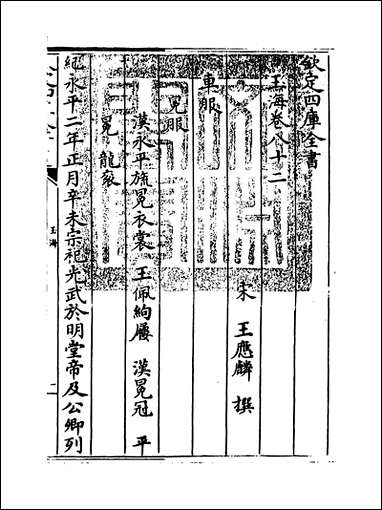 欽定四庫全書
玉海卷八十二
宋 王應麟 撰
車服
冕服
漢永平旒冕衣裳 玉佩絇屨 漢冕冠 平
冕 龍衮
紀永平二年正月辛未宗祀光武於明堂帝及公卿列
玉海
二